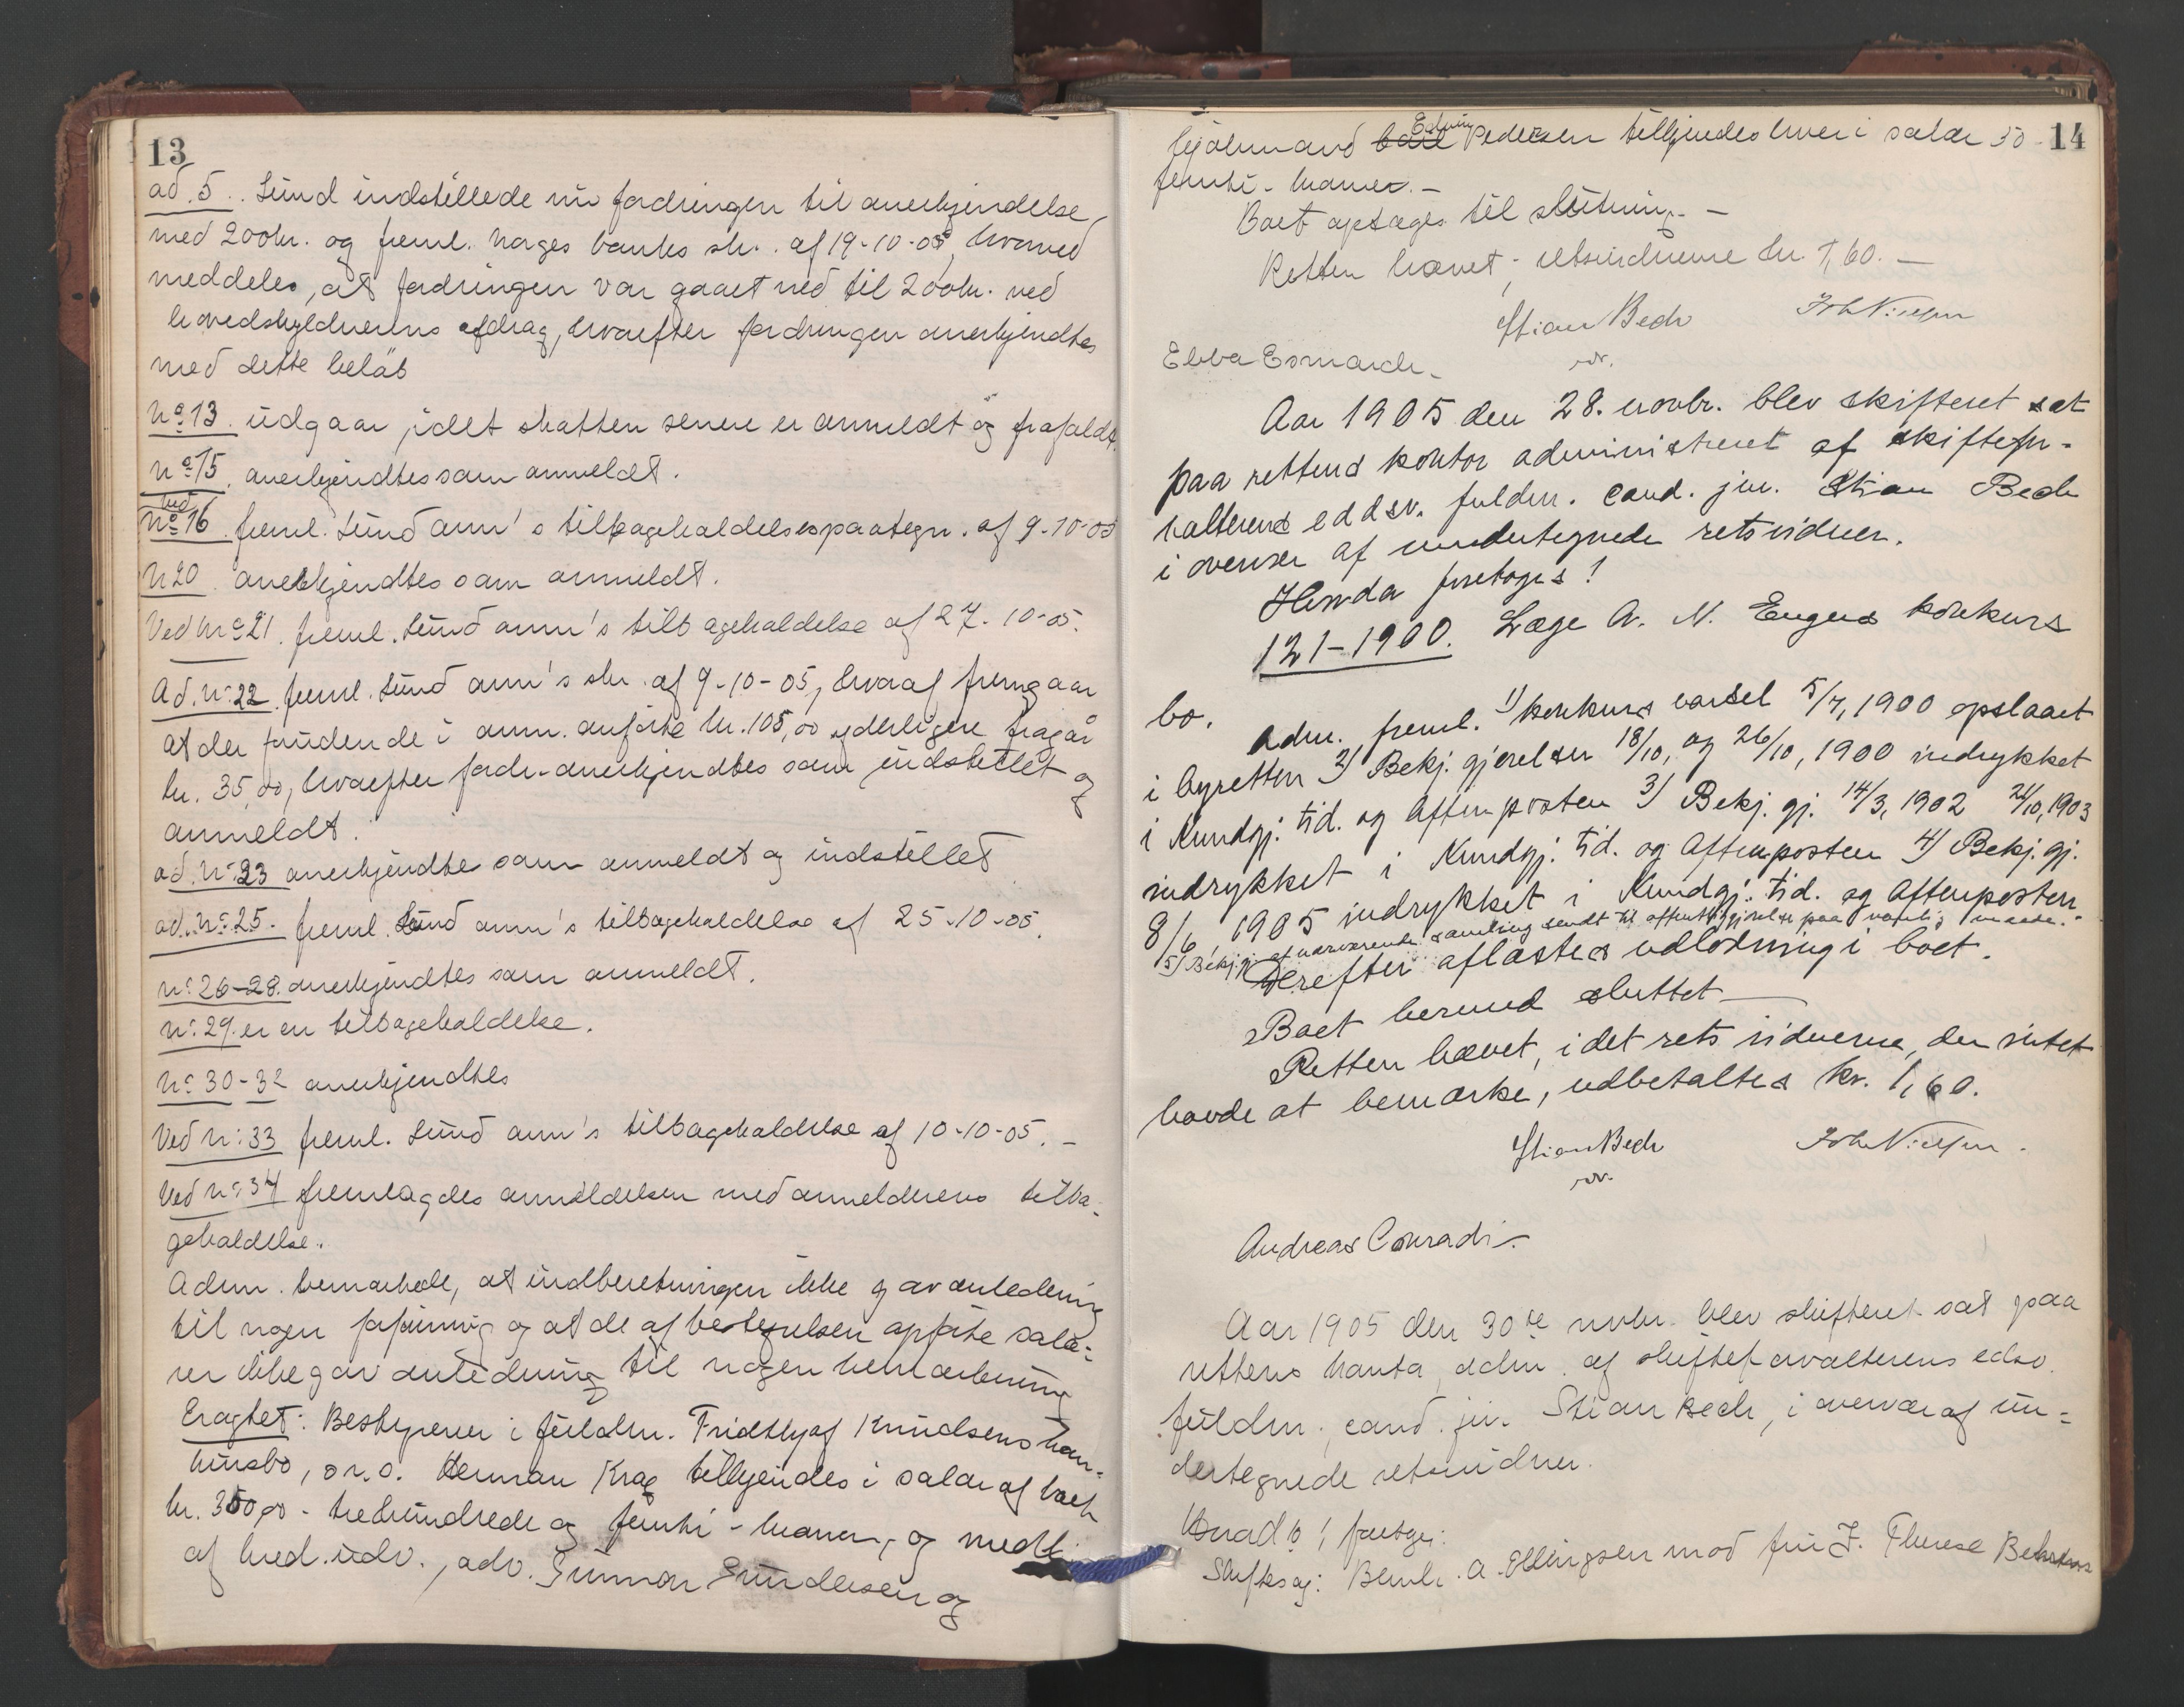 13
ad. 5.. Lund indstillede nu fordringen til anerkjendelse,
med 200kr. og freml. Norges banks skr. af 19-10-05, hvorved
meddeles, at fordringen var gaaet ned til 200kr. ved
hovedskyldnerens afdrag, hvorefter fordringen anerkjendtes
med dette beløb
No 13. udgaar, idet skatten senere er anmeldt og frafaldt.
No 15. anerkjendtes som anmeldt.
Ved No 16. freml. Lund anm's tilbagekaldelsespaategn. af 9-10-05
N 20 anerkjendtes som anmeldt.
Ved No 21. freml. Lund anm's tilbagekaldelse af 27-10-05.
Ad. No 22 freml. Lund anm's skr. af 9-10-05, hvoraf fremgaar
at der foruden de i anm. anførte kr. 105,00 yderligere fragår
kr. 35,00, hvorefter fordr. anerkjendtes som indstillet og
anmeldt.
ad. No 23 anerkjendtes som anmeldt og indstillet
ad. No 25. freml. Lund anm's tilbagekaldelse af 25-10-05.
No 26-28. anerkjendtes som anmeldt.
No 29. er en tilbagekaldelse.
No 30-32 anerkjendtes
Ved No 33 freml. Lund anm's tilbagekaldelse af 10-10-05. -
Ved No 34 fremlagdes anmeldelsen med anmelderens tilba-
gekaldelse.
Adm. bemærkede, at indberetningen ikke gav anledning
til nogen føining og at de af bestyrelsen opførte sala-
rer ikke gav anledning til nogen bemærkning
Eragtet: Bestyreren i fuldm. Fridthjof Knudsens kon-
kursbo, o.r.s. Herman Krag tilkjendes i salær af boet
kr. 350,00 - trehundrede og femti - kroner, og medl.
af kred.udv., adv. Gunnar Gundersen og
14
kjøbmand Edvin Pedersen tilkjendes hver i salær 50 -
femti - kroner. -
Boet optages til slutning. -
Retten hævet; retsvidnerne kr. 1,60. -
Stian Bech Joh Nielsen
cst.
Ebba Esmarch.
Aar 1905 den 28. novbr. blev skifteret sat
paa rettens kontor administreret af skiftefor-
valterens eddsv. fuldm. cand. jur. Stian Bech
i overvær af undertegnede retsvidner.
Hvorda foretoges!
121-1900. Læge A. N. Engers konkurs
bo.
Adm. freml. 1) konkurs varsel 5/7, 1900 opslaaet
i byretten 2) Bekj. gjørelser 18/10, og 26/10, 1900 indrykket
i Kundgj. tid. og Aftenposten 3) Bekj. gj. 14/3, 1902 21/10, 1903
indrykket i Kundgj. tid. og Aftenposten 4) Bekj. gj.
8/6, 1905 indrykket i Kundgj. tid. og Aftenposten.
5) Bekj. gj. af nærværende samling sendt til offentliggjørelse paa vanlig maade.
Derefter aflæstes udlodning i boet.
Boet hermed sluttet -
Retten hævet, idet rets vidnerne, der intet
havde at bemærke, udbetaltes kr. 1,60.
Stian Bech Joh Nielsen.
cst.
Andreas Conradi.
Aar 1905 den 30te novbr. blev skifteret sat paa
rettens kontor, adm. af skifteforvalterens edsv.
fuldm., cand. jur. Stian Bech, i overvær af un-
dertegnede retsvidner.
Hvorda! foretoges:
Skiftesag: A. Ellingsen mod fru J. Therese